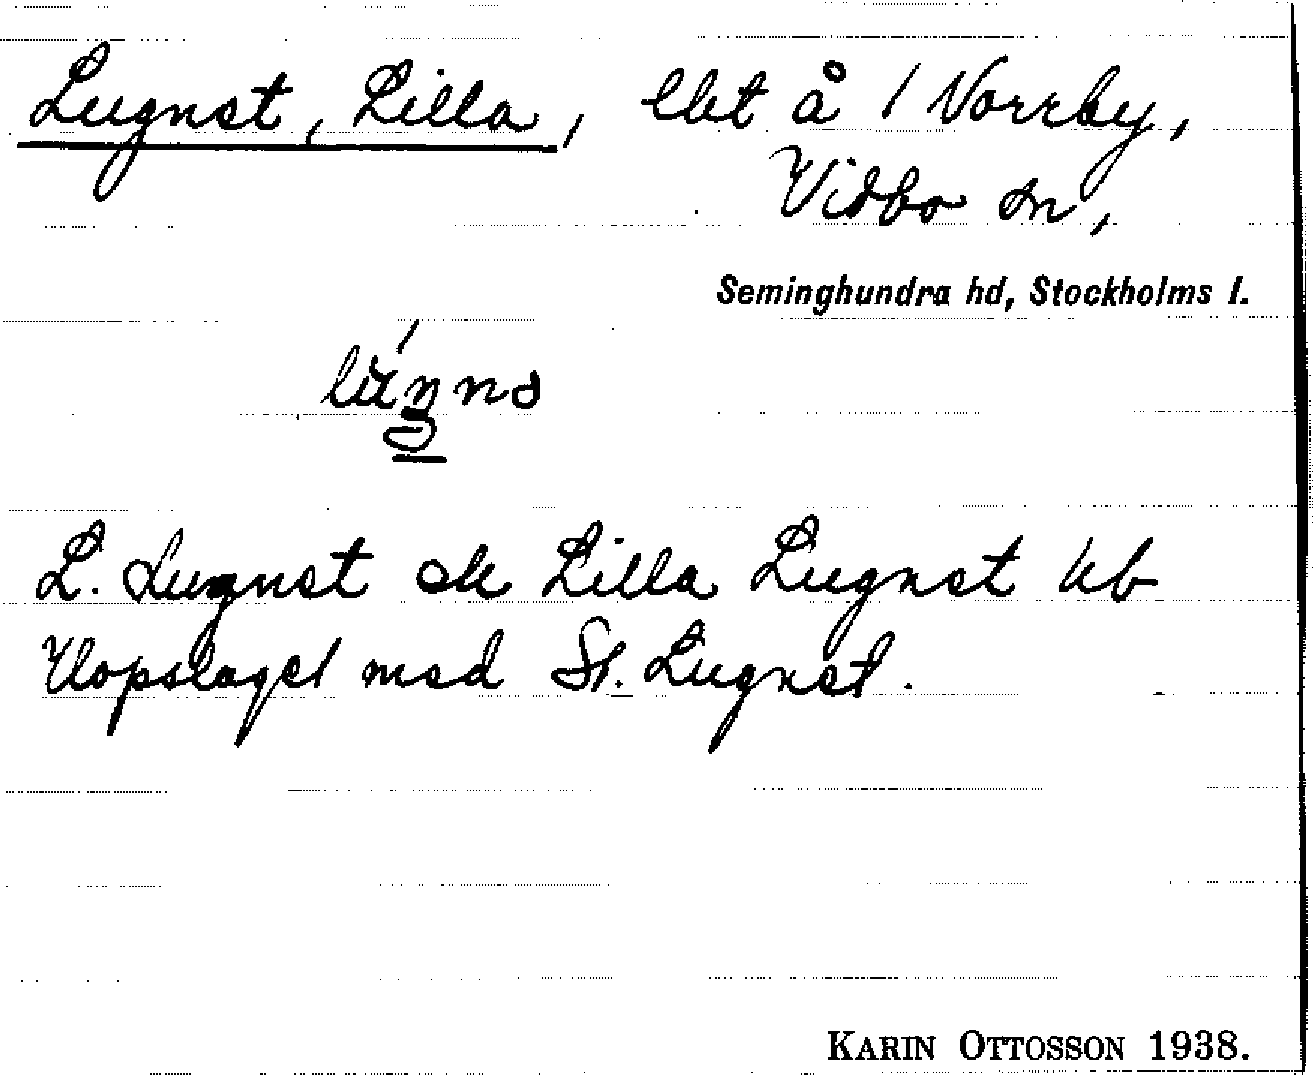 Lugnet, Lilla, lht å 1 Norrby,
Vidbo sn,
Seminghundra hd, Stockholms l.
L. Lugnet ek Lilla Lugnet kb
Uopslaget med St. Lugnet.
KARIN OTTOSSON 1938.